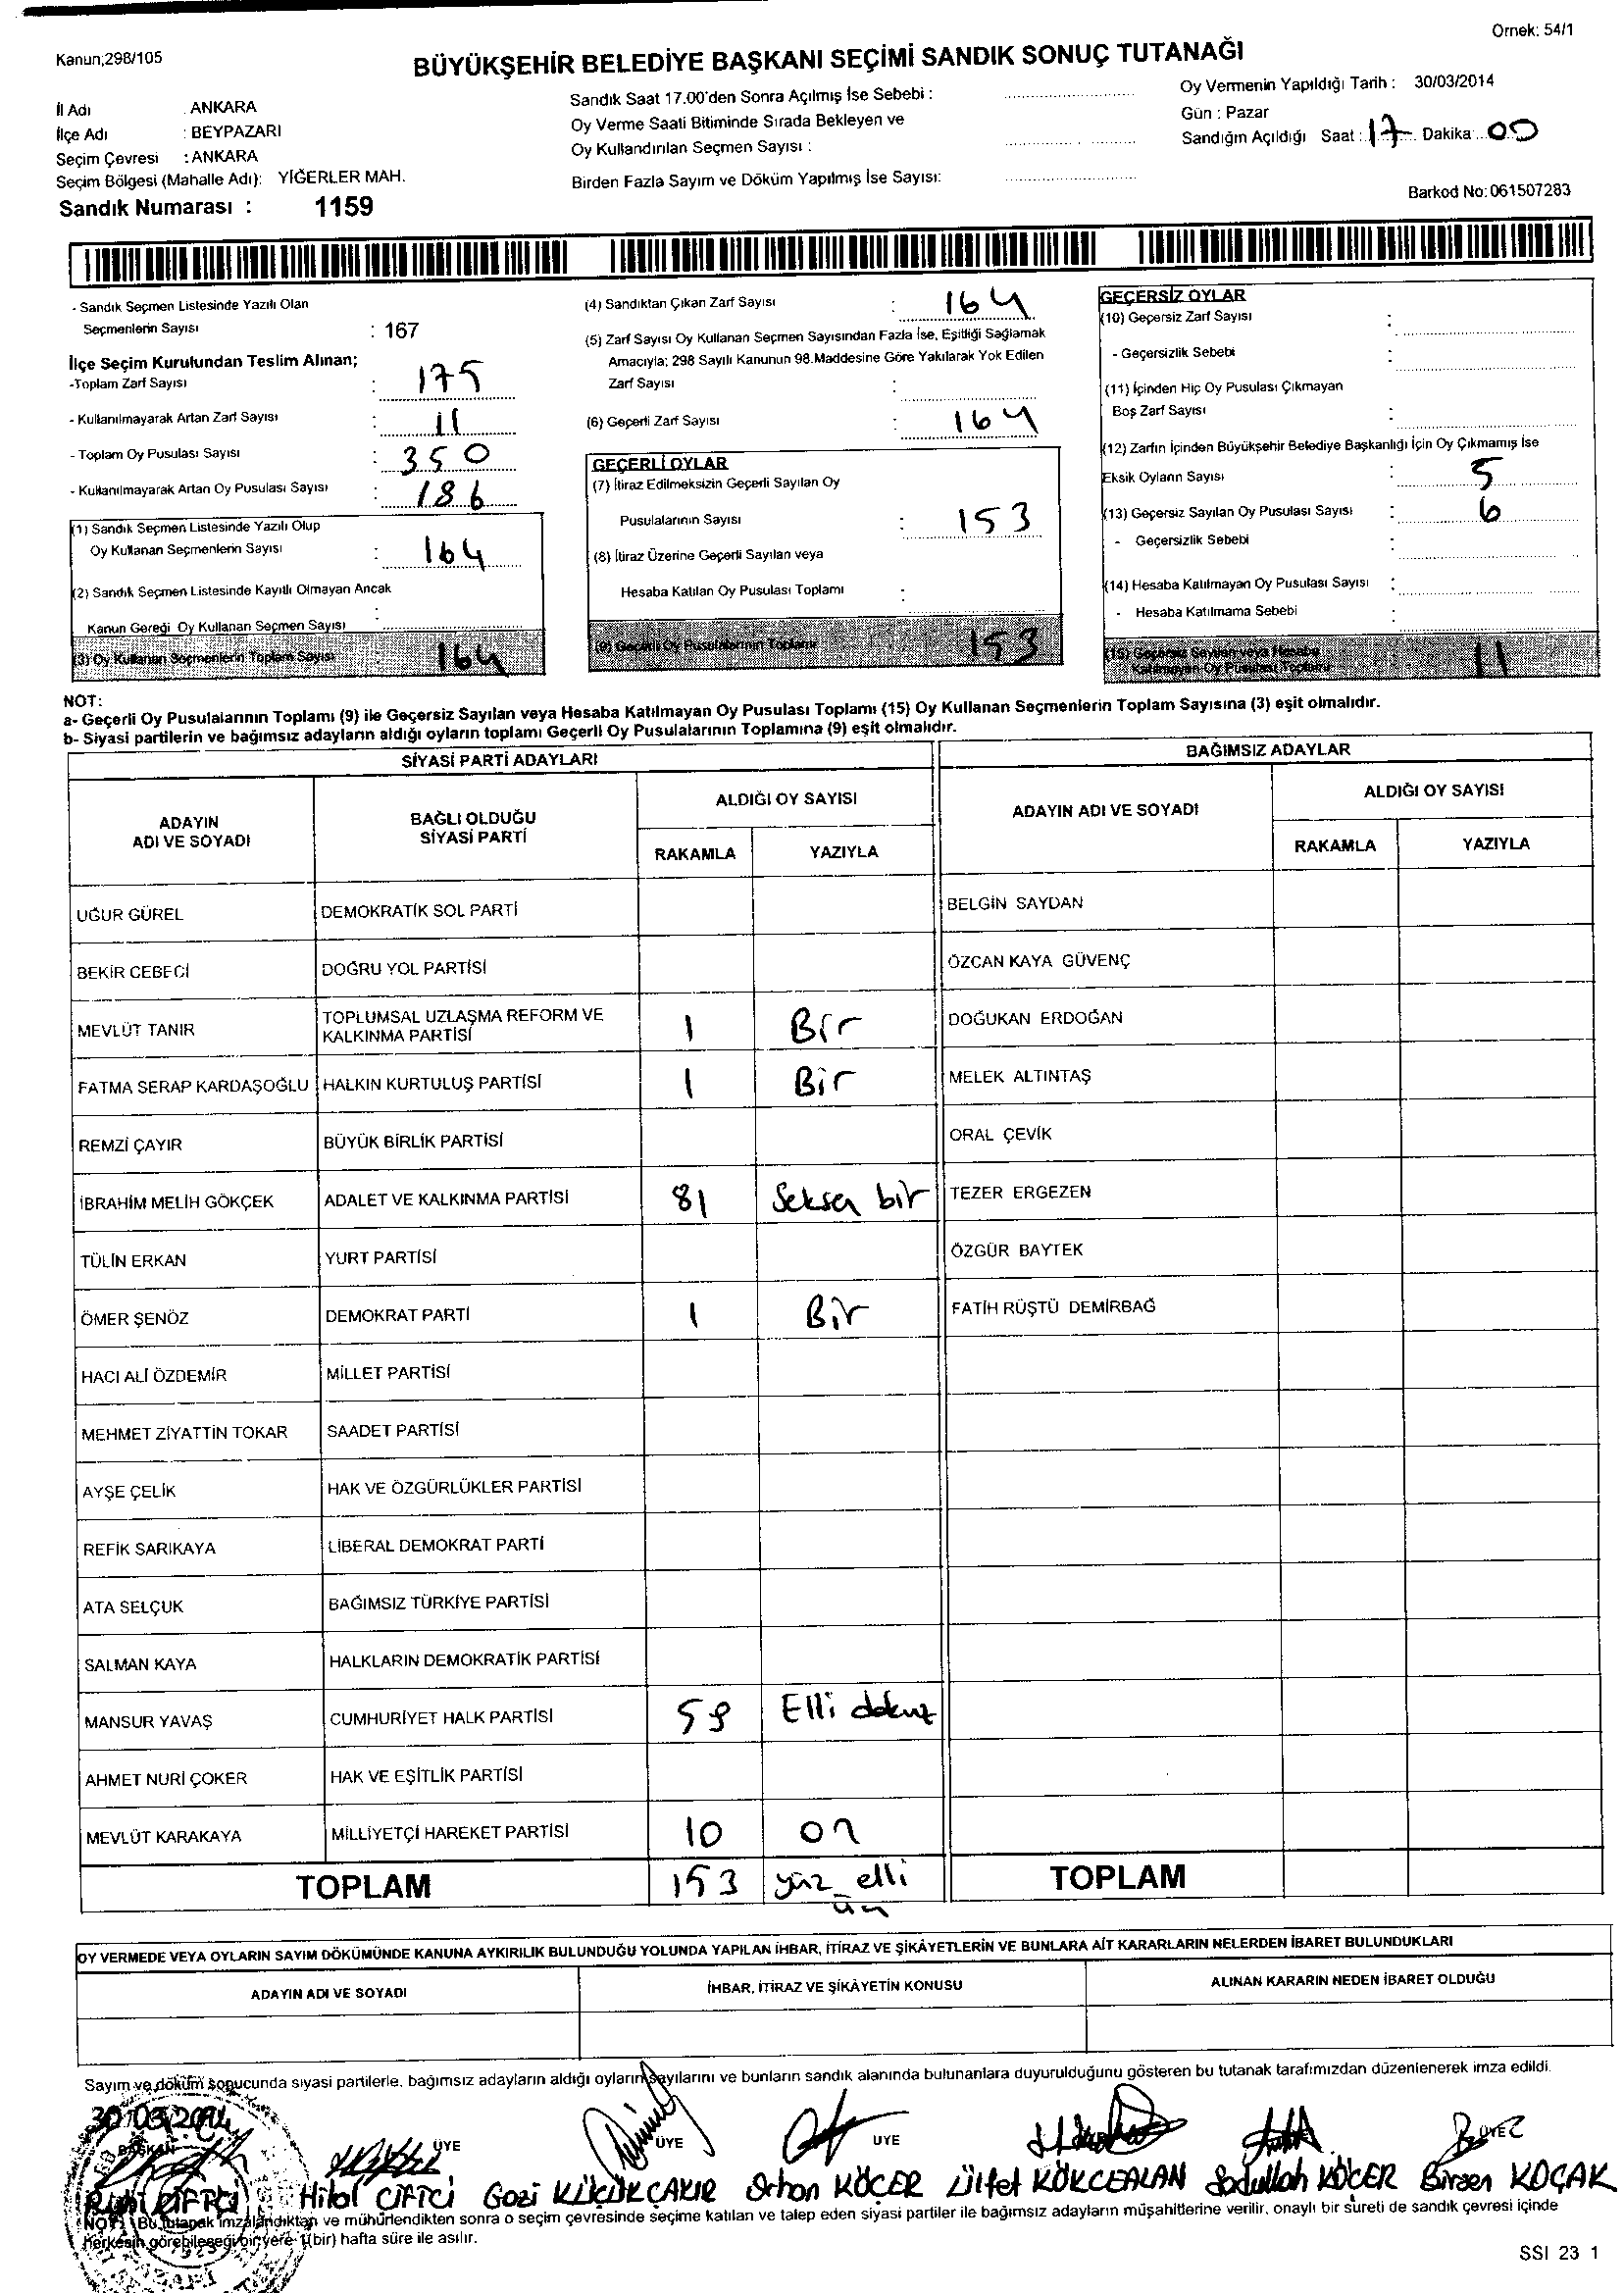 Örnek: 54/1
Kanun;298/105
BÜYÜKŞEHİR BELEDİYE BAŞKANI SEÇİMİ SANDIK SONUÇ TUTANAĞI
İl Adı : ANKARA
İlçe Adı : BEYPAZARI
Seçim Çevresi : ANKARA
Seçim Bölgesi (Mahalle Adı): YİĞERLER MAH.
Sandık Numarası : 1159
Sandık Saat 17.00'den Sonra Açılmış İse Sebebi :
Oy Verme Saati Bitiminde Sırada Bekleyen ve
Oy Kullandırılan Seçmen Sayısı :
Birden Fazla Sayım ve Döküm Yapılmış İse Sayısı:
Oy Vermenin Yapıldığı Tarih : 30/03/2014
Gün : Pazar
Sandığın Açıldığı Saat : 17 Dakika 00
Barkod No: 061507283
- Sandık Seçmen Listesinde Yazılı Olan
Seçmenlerin Sayısı : 167
İlçe Seçim Kurulundan Teslim Alınan;
-Toplam Zarf Sayısı : 175
- Kullanılmayarak Artan Zarf Sayısı : 11
- Toplam Oy Pusulası Sayısı : 350
- Kullanılmayarak Artan Oy Pusulası Sayısı : 186
(1) Sandık Seçmen Listesinde Yazılı Olup
Oy Kullanan Seçmenlerin Sayısı : 164
(2) Sandık Seçmen Listesinde Kayıtlı Olmayan Ancak
Kanun Gereği Oy Kullanan Seçmen Sayısı :
(3) Oy Kullanan Seçmenlerin Toplam Sayısı 164
(4) Sandıktan Çıkan Zarf Sayısı : 164
(5) Zarf Sayısı Oy Kullanan Seçmen Sayısından Fazla İse, Eşitliği Sağlamak
Amacıyla; 298 Sayılı Kanunun 98.Maddesine Göre Yakılarak Yok Edilen
Zarf Sayısı :
(6) Geçerli Zarf Sayısı : 164
GEÇERLİ OYLAR
(7) İtiraz Edilmeksizin Geçerli Sayılan Oy
Pusulalarının Sayısı : 153
(8) İtiraz Üzerine Geçerli Sayılan veya
Hesaba Katılan Oy Pusulası Toplamı :
(9) Geçerli Oy Pusulalarının Toplamı 153
GEÇERSİZ OYLAR
(10) Geçersiz Zarf Sayısı :
- Geçersizlik Sebebi :
(11) İçinden Hiç Oy Pusulası Çıkmayan
Boş Zarf Sayısı :
(12) Zarfın İçinden Büyükşehir Belediye Başkanlığı İçin Oy Çıkmamış İse
Eksik Oyların Sayısı : 5
(13) Geçersiz Sayılan Oy Pusulası Sayısı : 6
- Geçersizlik Sebebi :
(14) Hesaba Katılmayan Oy Pusulası Sayısı :
- Hesaba Katılmama Sebebi :
(15) Geçersiz Sayılan veya Hesaba
Katılmayan Oy Pusulası Toplamı 11
NOT:
a- Geçerli Oy Pusulalarının Toplamı (9) ile Geçersiz Sayılan veya Hesaba Katılmayan Oy Pusulası Toplamı (15) Oy Kullanan Seçmenlerin Toplam Sayısına (3) eşit olmalıdır.
b- Siyasi partilerin ve bağımsız adayların aldığı oyların toplamı Geçerli Oy Pusulalarının Toplamına (9) eşit olmalıdır.
SİYASİ PARTİ ADAYLARI
ADAYIN
ADI VE SOYADI
BAĞLI OLDUĞU
SİYASİ PARTİ
ALDIĞI OY SAYISI
RAKAMLA YAZIYLA
UĞUR GÜREL DEMOKRATİK SOL PARTİ
BEKİR CEBECİ DOĞRU YOL PARTİSİ
MEVLÜT TANIR TOPLUMSAL UZLAŞMA REFORM VE
KALKINMA PARTİSİ 1 Bir
FATMA SERAP KARDAŞOĞLU HALKIN KURTULUŞ PARTİSİ 1 Bir
REMZİ ÇAYIR BÜYÜK BİRLİK PARTİSİ
İBRAHİM MELİH GÖKÇEK ADALET VE KALKINMA PARTİSİ 81 Seksen bir
TÜLİN ERKAN YURT PARTİSİ
ÖMER ŞENÖZ DEMOKRAT PARTİ 1 Bir
HACI ALİ ÖZDEMİR MİLLET PARTİSİ
MEHMET ZİYATTİN TOKAR SAADET PARTİSİ
AYŞE ÇELİK HAK VE ÖZGÜRLÜKLER PARTİSİ
REFİK SARIKAYA LİBERAL DEMOKRAT PARTİ
ATA SELÇUK BAĞIMSIZ TÜRKİYE PARTİSİ
SALMAN KAYA HALKLARIN DEMOKRATİK PARTİSİ
MANSUR YAVAŞ CUMHURİYET HALK PARTİSİ 59 Elli dokuz
AHMET NURİ ÇOKER HAK VE EŞİTLİK PARTİSİ
MEVLÜT KARAKAYA MİLLİYETÇİ HAREKET PARTİSİ 10 on
TOPLAM 153 yüz elli
üç
BAĞIMSIZ ADAYLAR
ADAYIN ADI VE SOYADI
ALDIĞI OY SAYISI
RAKAMLA YAZIYLA
BELGİN SAYDAN
ÖZCAN KAYA GÜVENÇ
DOĞUKAN ERDOĞAN
MELEK ALTINTAŞ
ORAL ÇEVİK
TEZER ERGEZEN
ÖZGÜR BAYTEK
FATİH RÜŞTÜ DEMİRBAĞ
TOPLAM
OY VERMEDE VEYA OYLARIN SAYIM DÖKÜMÜNDE KANUNA AYKIRILIK BULUNDUĞU YOLUNDA YAPILAN İHBAR, İTİRAZ VE ŞİKÂYETLERİN VE BUNLARA AİT KARARLARIN NELERDEN İBARET BULUNDUKLARI
ADAYIN ADI VE SOYADI
İHBAR, İTİRAZ VE ŞİKÂYETİN KONUSU
ALINAN KARARIN NEDEN İBARET OLDUĞU
Sayım ve döküm sonucunda siyasi partilerle, bağımsız adayların aldığı oyların sayılarını ve bunların sandık alanında bulunanlara duyurulduğunu gösteren bu tutanak tarafımızdan düzenlenerek imza edildi.
30/03/2014
BAŞKAN ÜYE ÜYE ÜYE ÜYE
ÇİFTÇİ Hilal ÇİFTÇİ Gazi KÜÇÜKÇAKIR Orhan KÖÇER Ülfet KÖKCEALAN Sadullah KÖÇER Birsen KOÇAK
NOT: Bu tutanak imzalandıktan ve mühürlendikten sonra o seçim çevresinde seçime katılan ve talep eden siyasi partiler ile bağımsız adayların müşahitlerine verilir, onaylı bir sureti de sandık çevresi içinde
herkesin görebileceği bir yere 1(bir) hafta süre ile asılır.
SSI 23 1